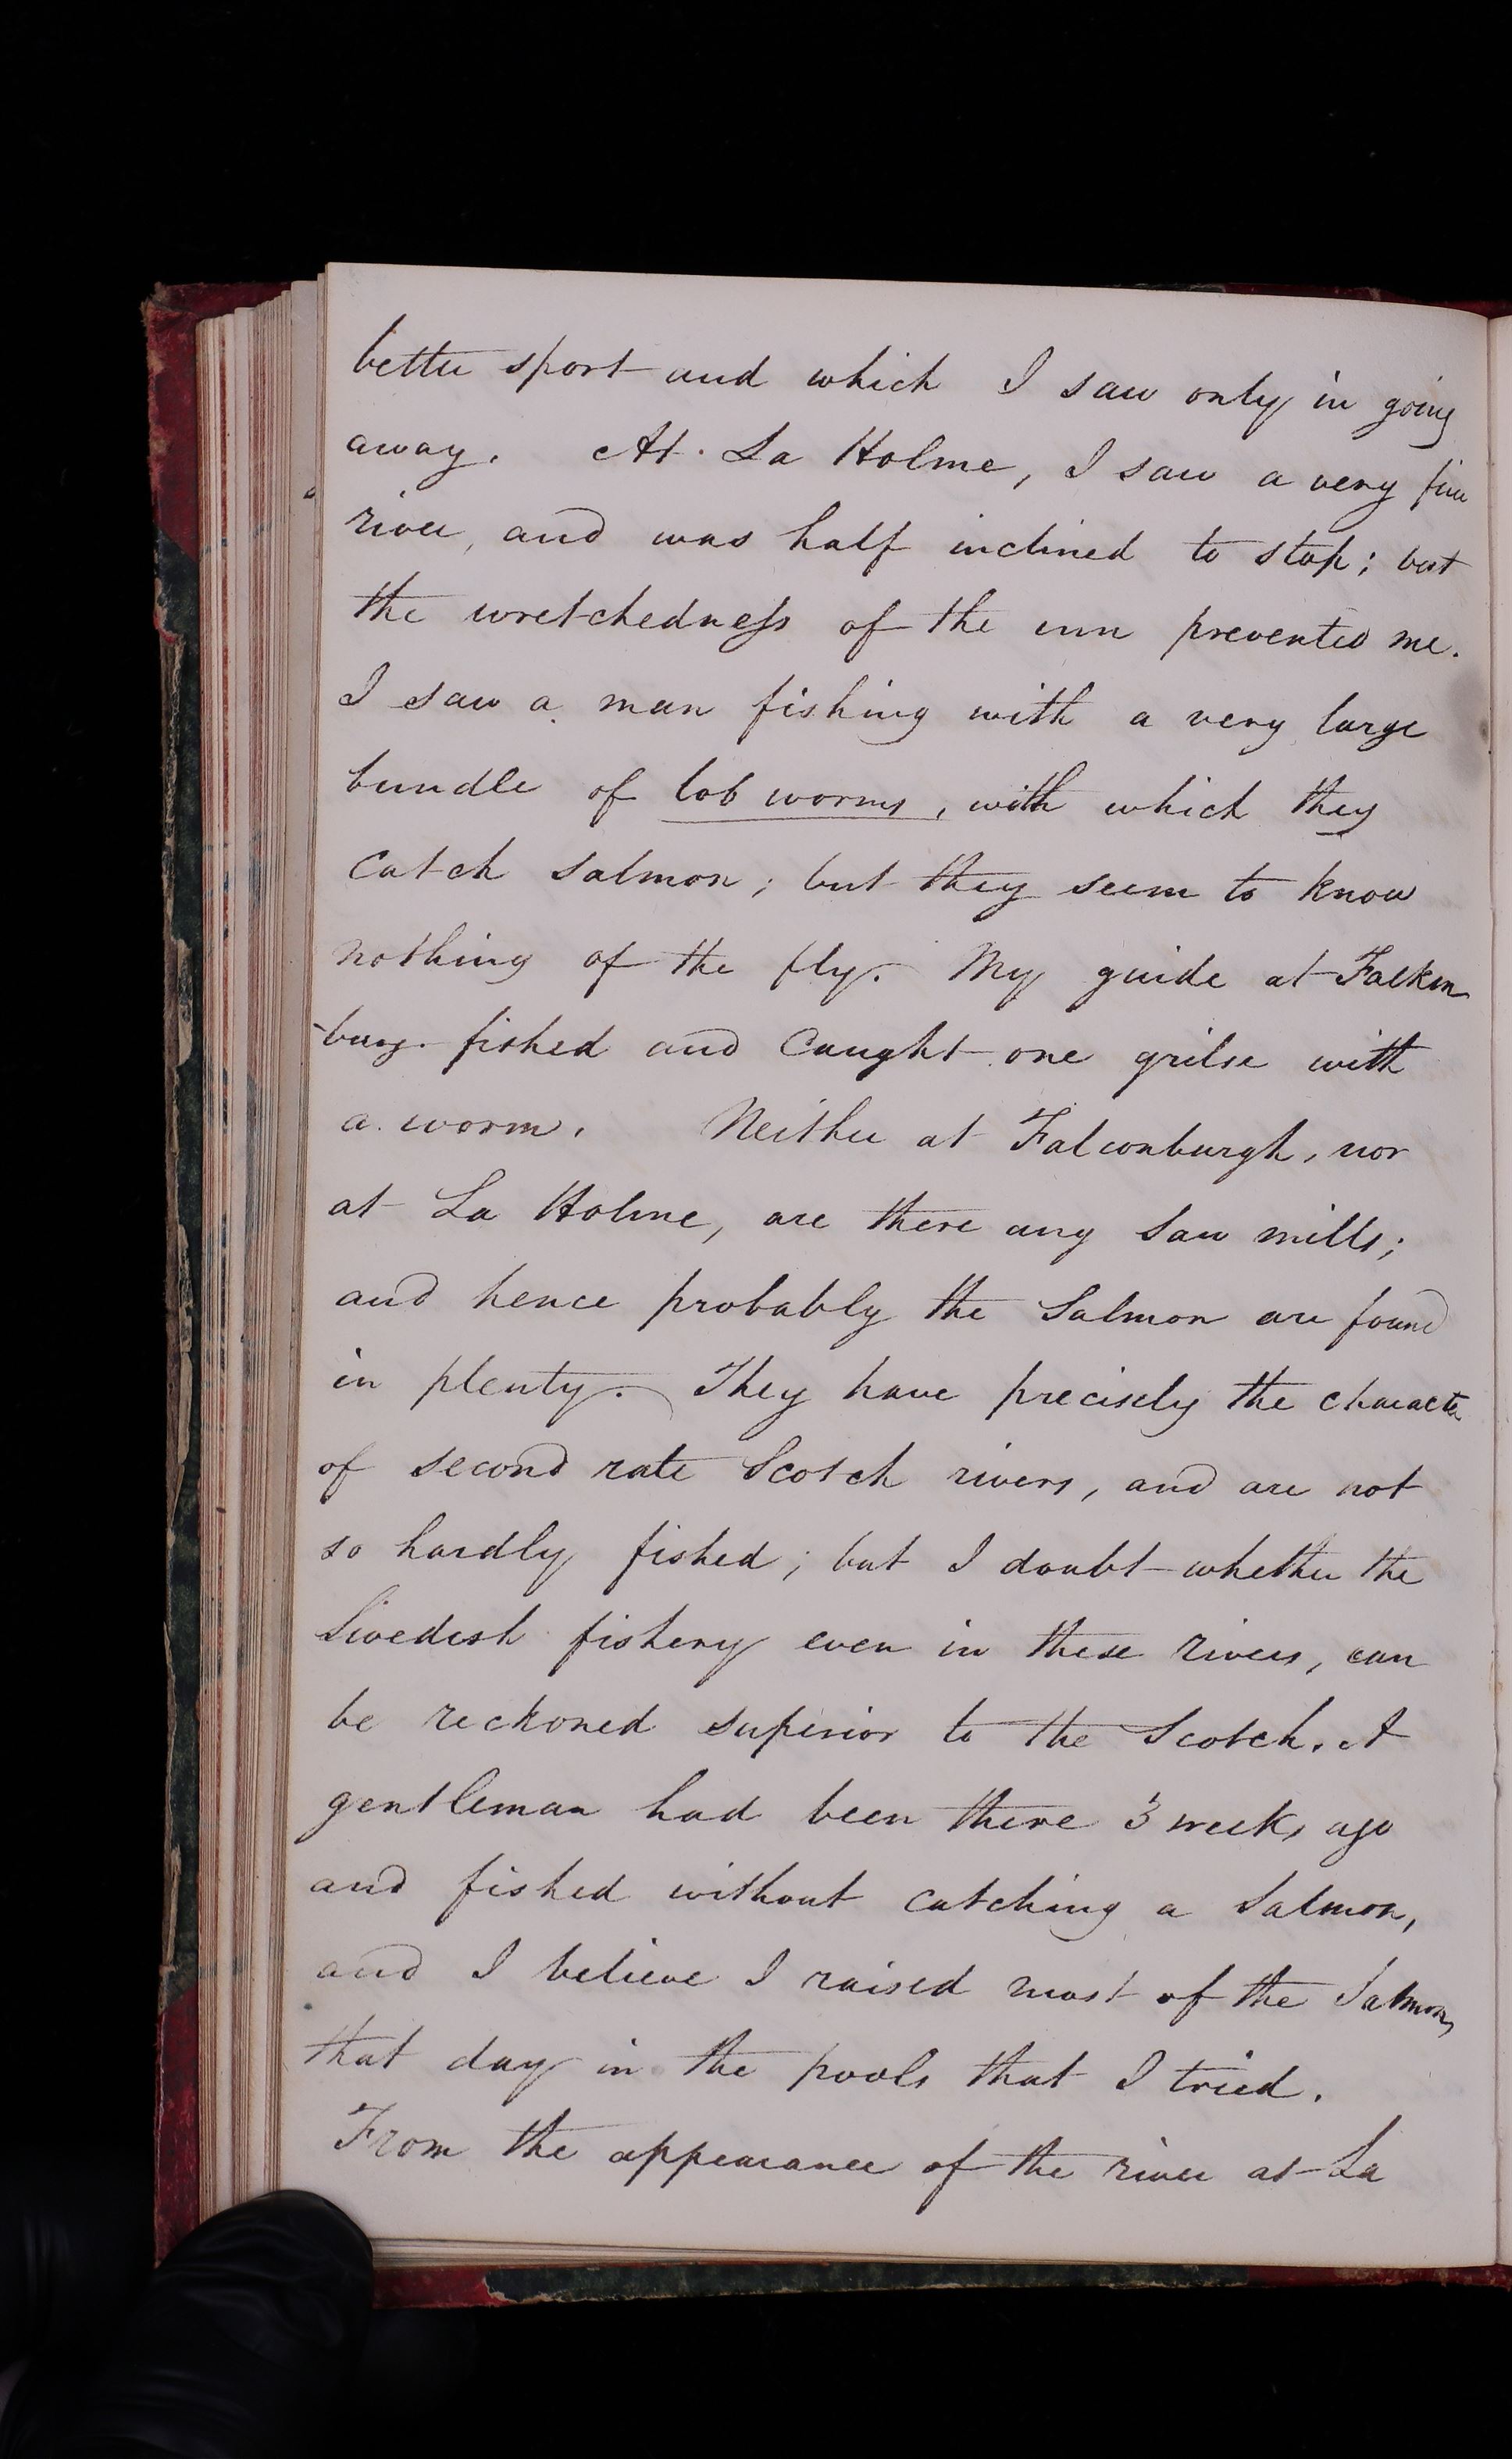 better sport and which I saw only in going
away. At La Holme, I saw a very fine
river, and was half inclined to stop; but
the wretchedness of the inn prevented me.
I saw a man fishing with a very large
bundle of lob worms, with which they
catch salmon; but they seem to know
nothing of the fly. My guide at Falken
-burg. fished and Caught one grilse with
a worm. Neither at Falconburgh, nor
at La Holme, are there any Saw mills;
and hence probably the Salmon are found
in plenty. They have precisely the character
of second rate Scotch rivers, and are not
so hardly fished; but I doubt whether the
Swedish fishery even in these rivers, can
be reckoned superior to the Scotch. A
gentleman had been there 3 weeks ago
and fished without catching a Salmon,
and I believe I raised most of the Salmon,
that day in the pools that I tried.
From the appearance of the river at La